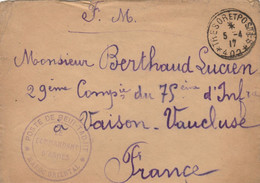 F. M.
TRESOR ET POSTES
5-4
17
Monsieur Berthaud Lucien
29ème Compie du 75ème d'Infie
à Vaison - Vaucluse
France
POSTE DE